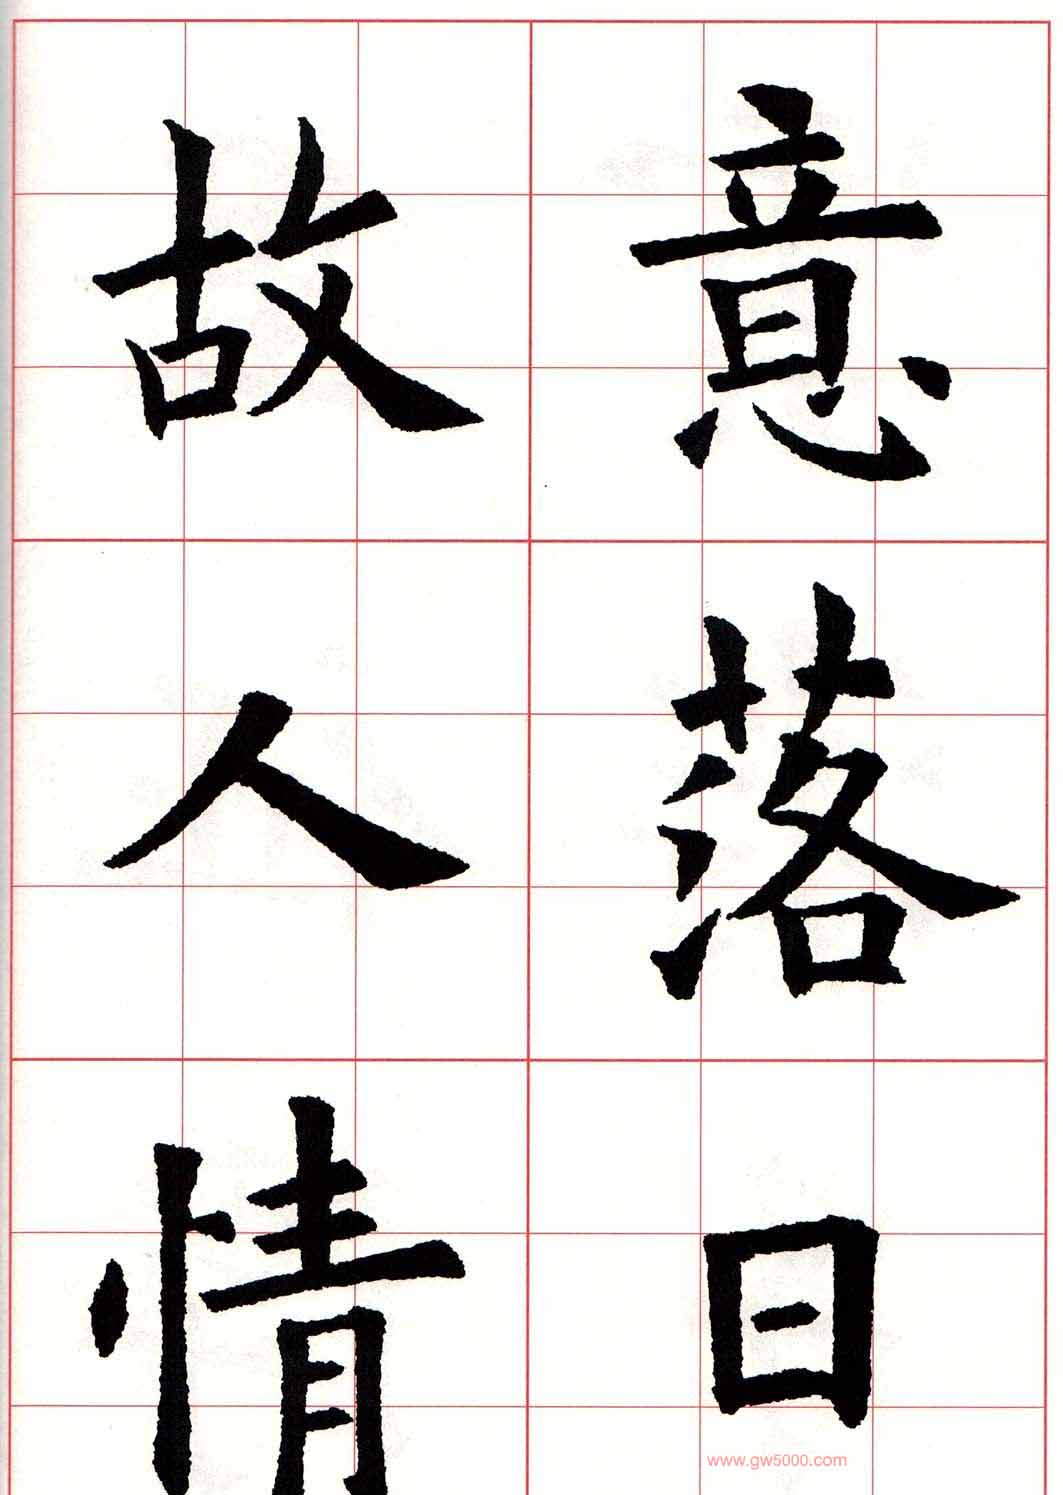 意落日
故人情
www.gw5000.com